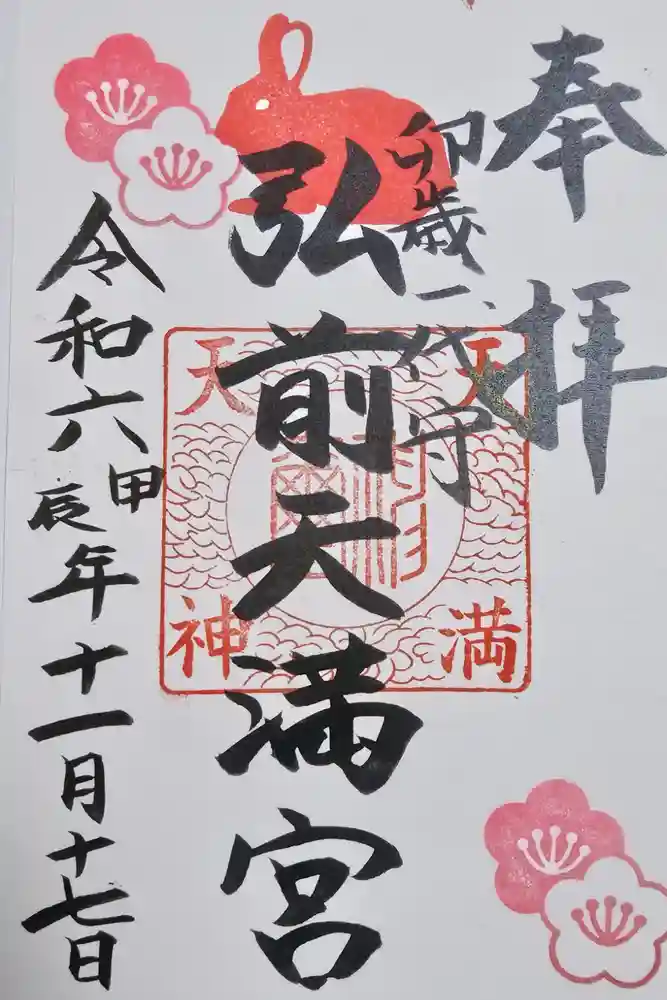 奉拝
卯歳一代守
弘前天満宮
天満
天神
令和六甲辰年十一月十七日